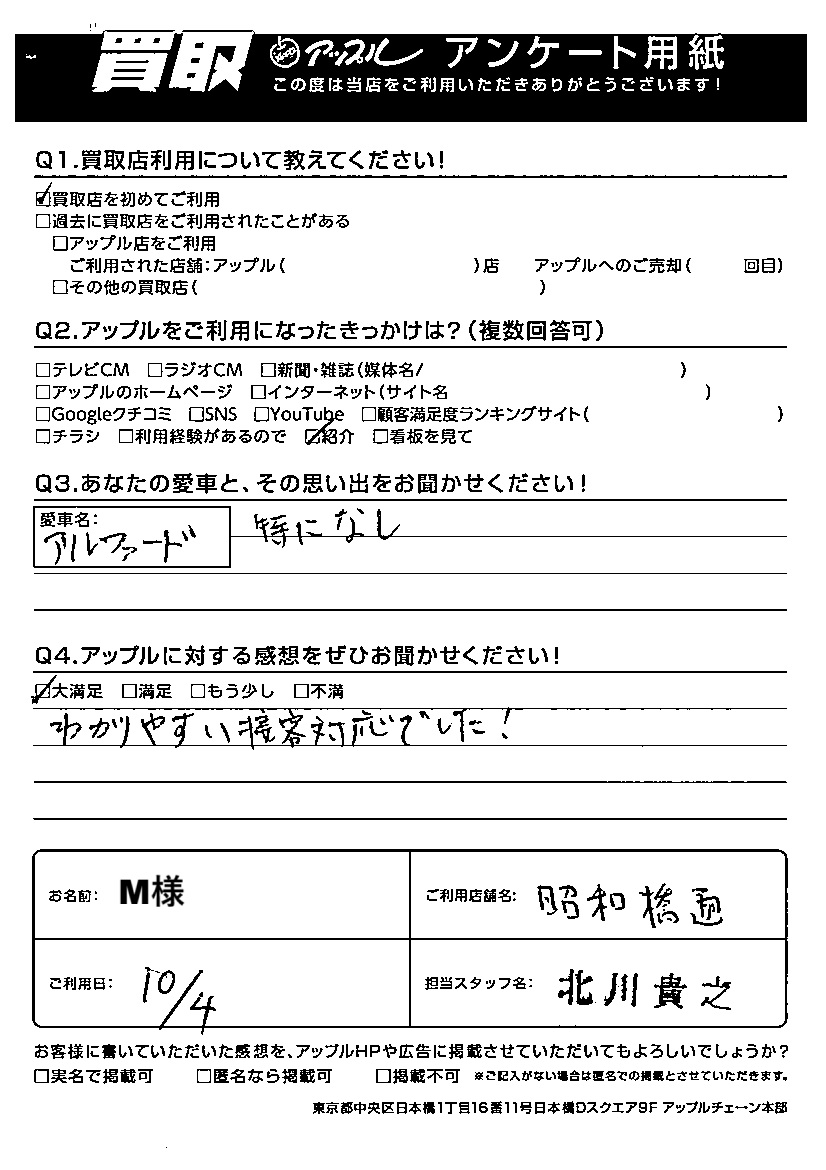 買取 アップル アンケート用紙
この度は当店をご利用いただきありがとうございます!
Q1.買取店利用について教えてください!
☑買取店を初めてご利用
□過去に買取店をご利用されたことがある
□アップル店をご利用
ご利用された店舗:アップル( )店 アップルへのご売却( 回目)
□その他の買取店( )
Q2.アップルをご利用になったきっかけは?(複数回答可)
□テレビCM □ラジオCM □新聞・雑誌(媒体名/ )
□アップルのホームページ □インターネット(サイト名 )
□Googleクチコミ □SNS □YouTube □顧客満足度ランキングサイト( )
□チラシ □利用経験があるので ☑紹介 □看板を見て
Q3.あなたの愛車と、その思い出をお聞かせください!
愛車名:
アルファード 特になし
Q4.アップルに対する感想をぜひお聞かせください!
☑大満足 □満足 □もう少し □不満
わかりやすい接客対応でした!
お名前: M様 ご利用店舗名: 昭和橋通
ご利用日: 10/4 担当スタッフ名: 北川貴之
お客様に書いていただいた感想を、アップルHPや広告に掲載させていただいてもよろしいでしょうか?
□実名で掲載可 □匿名なら掲載可 □掲載不可 ※ご記入がない場合は匿名での掲載とさせていただきます。
東京都中央区日本橋1丁目16番11号日本橋Dスクエア9F アップルチェーン本部